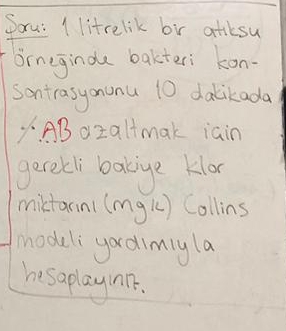 Soru: 1 litrelik bir atıksu
örneğinde bakteri kon-
santrasyonunu 10 dakikada
% AB azaltmak için
gerekli bakiye klor
miktarını (mg/L) Collins
modeli yardımıyla
hesaplayınız.